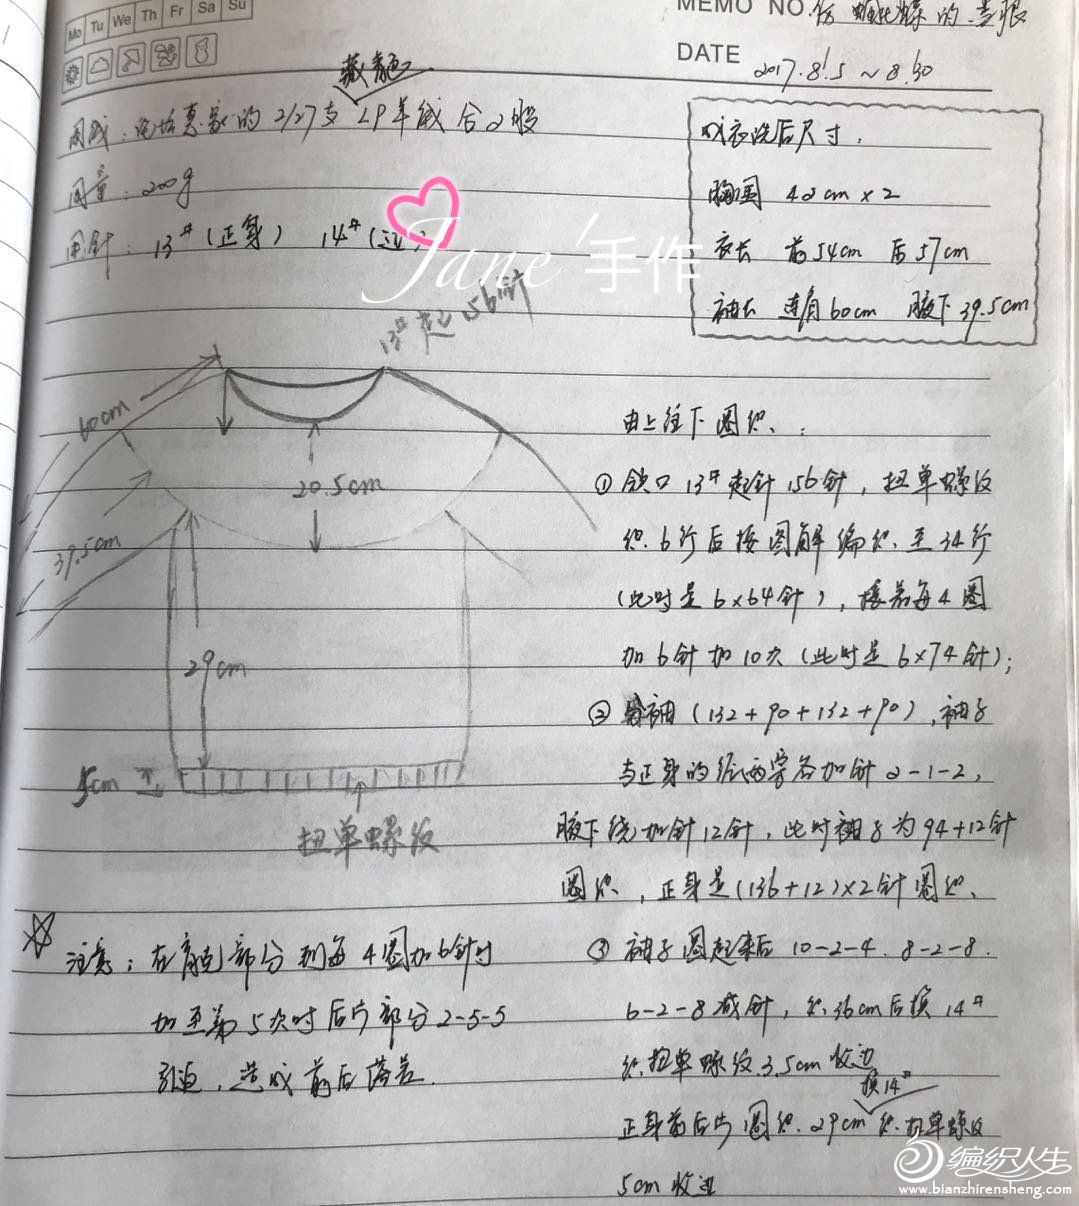 Mo Tu We Th Fr Sa Su
MEMO NO. 仿 的套服
DATE 2017.8.5 ~ 8.30
藏青色
用线：惠家的2/27支 羊绒合2股
用量：200g
用针：13#（正身） 14#（边）
Jane'手作
成衣洗后尺寸：
胸围 42cm×2
衣长 前54cm 后57cm
袖长 连肩60cm 腋下39.5cm
13#起156针
60cm
39.5cm
20.5cm
29cm
5cm
扭单螺纹
由上往下圈织：
① 领口13#起针156针，扭单螺纹
织6行后按图解编织至34行
（此时是6×64针），接着每4圈
加6针加10次（此时是6×74针）；
② 分袖（132+90+132+90），袖子
与正身的 两旁各加针2-1-2，
腋下绕加针12针，此时袖子为94+12针
圈织，正身是(136+12)×2针圈织、
③ 袖子圈起来后10-2-4. 8-2-8.
6-2-8减针，织36cm后换14#
织扭单螺纹3.5cm收边
换14#
正身前后片圈织29cm织扭单螺纹
5cm收边
注意：在育克部分到每4圈加6针时
加至第5次时后片部分2-5-5
引退，造成前后落差.
编织人生
www.bianzhirensheng.com